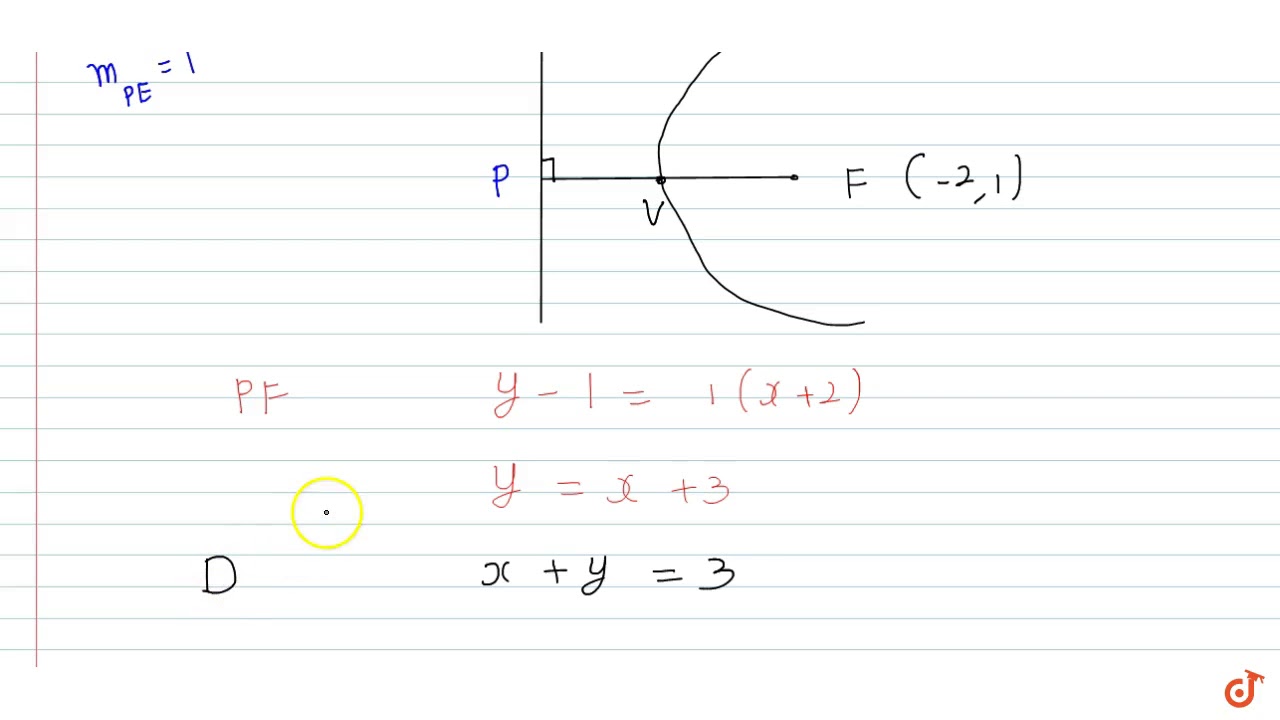 m_PE = 1
P F (-2,1)
V
PF y - 1 = 1(x+2)
y = x + 3
D x + y = 3